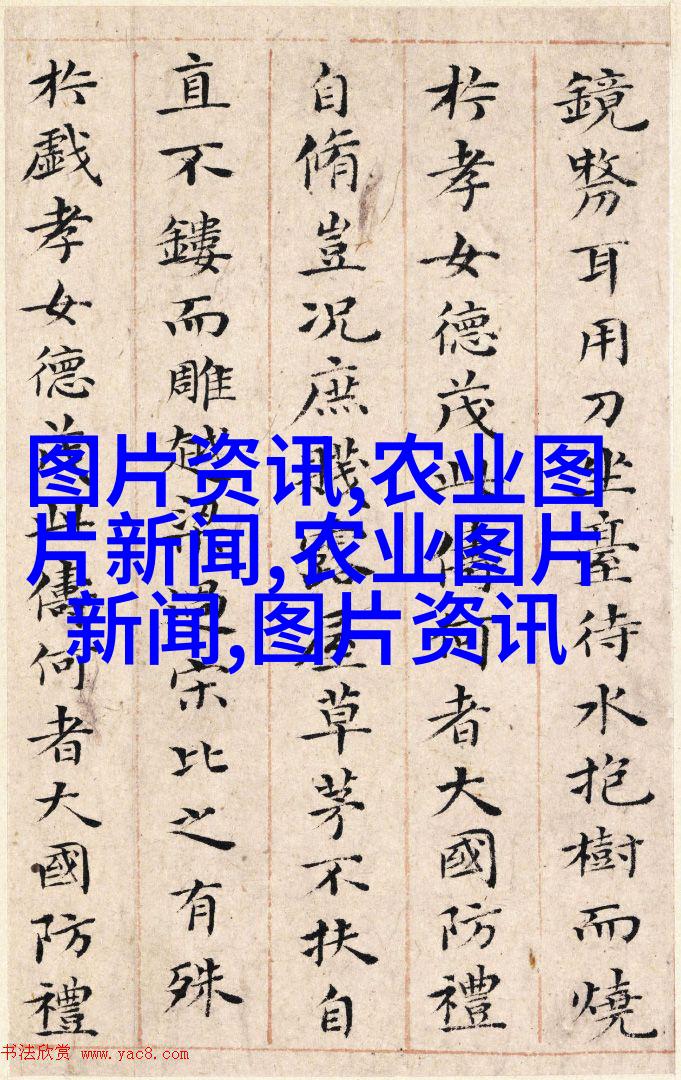 鏡剺耳用刀坐臺待水抱樹而燒
於孝女德茂此儔何者大國防禮
自脩豈況庶賤露屋草茅不扶自
直不鏤而雕越梁過宋比之有殊
於戲孝女德茂此儔何者大國防禮
图片资讯,农业图
片新闻,农业图片
新闻,图片资讯
书法欣赏 www.yac8.com